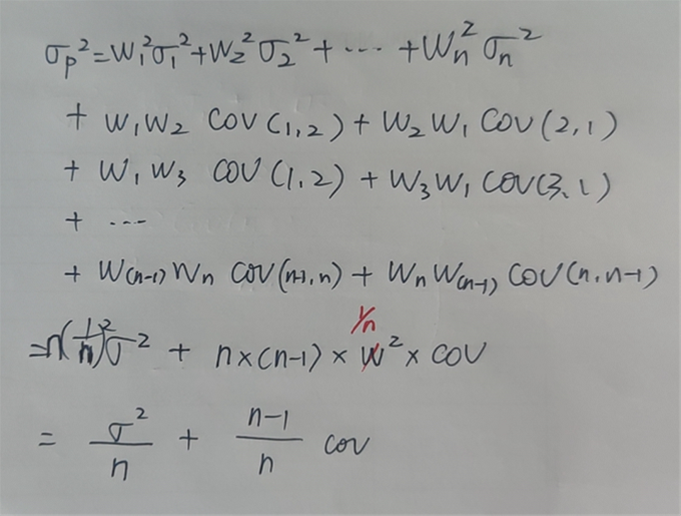 σp²=W₁²σ₁²+W₂²σ₂²+⋯+Wn²σn²
+ W₁W₂ COV(1,2)+W₂W₁COV(2,1)
+ W₁W₃ COV(1,2)+W₃W₁COV(3,1)
+ ⋯
+ W(n-1)Wn COV(n-1,n)+WnW(n-1)COV(n,n-1)
1/n
=n(1/n)²σ² + n×(n-1)×W²×COV
= σ²/n + (n-1)/n cov